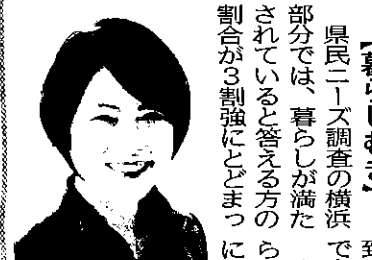 【暮らしむき】
県民ニーズ調査の横浜
部分では、暮らしが満た
されていると答える方の
割合が3割強にとどまっ
で
ら
に